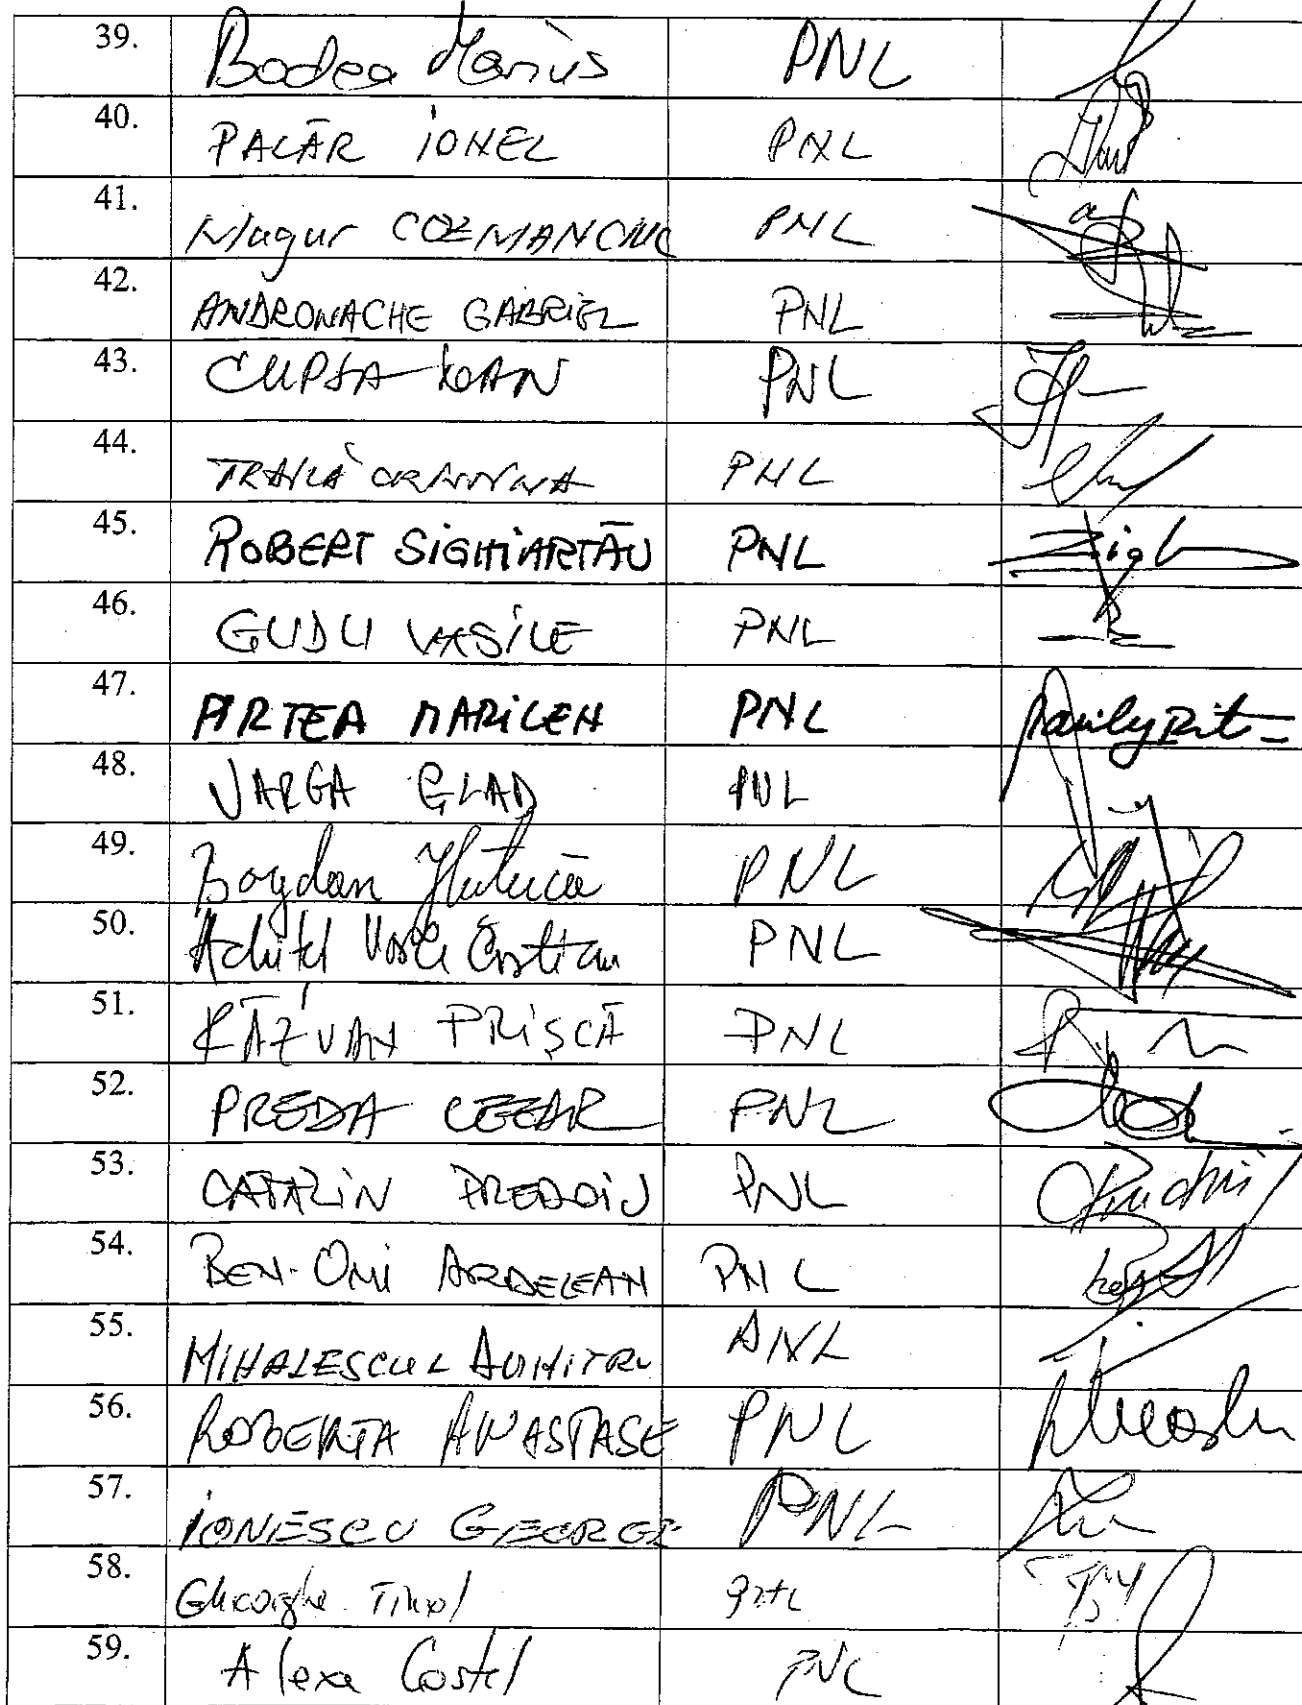 39. Bodea Marius PNL
40. PALĂR IONEL PNL
41. Magur COZMANCIUC PNL
42. ANDRONACHE GABRIEL PNL
43. CUPȘA IOAN PNL
44. TRAILĂ PNL
45. ROBERT SIGHIARTĂU PNL
46. GUDU VASILE PNL
47. PIRTEA MARILEN PNL
48. VARGA GLAD PNL
49. Bogdan Huțucă PNL
50. Achiței Vasile Cristian PNL
51. RĂZVAN PRIȘCĂ PNL
52. PREDA CEZAR PNL
53. CATALIN PREDOIU PNL
54. BEN-ONI ARDELEAN PNL
55. MIHALESCUL DUMITRU PNL
56. ROBERTA ANASTASE PNL
57. IONESCU GEORGE PNL
58. Gheorghe PNL
59. Alexe Costel PNL